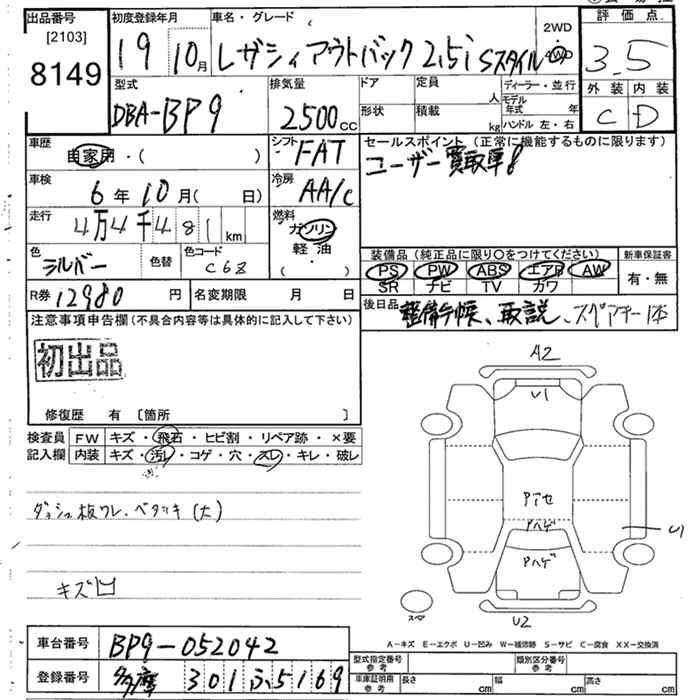 出品番号 初度登録年月 車名・グレード 2WD 評価点
[2103]
8149 19 10月 レガシィアウトバック 2.5i Sスタイル 4WD 3.5
型式 排気量 ドア 定員 ディーラー・並行 外装 内装
DBA-BP9 2500cc 人 モデル年式 年 C D
形状 積載 kg ハンドル 左・右
車歴 自家用・( ) シフト FAT セールスポイント(正常に機能するものに限ります)
ユーザー買取車!
車検 6年10月( 日) 冷房 AA/C
走行 4万4千481km 燃料 ガソリン
軽油
( )
色 シルバー 色替 色コード C6Z 装備品(純正品に限り○をつけてください) 新車保証書
PS PW ABS エアB AW 有・無
SR ナビ TV カワ
R券 12980円 名変期限 月 日 後日品 整備手帳、取説、スペアキー1本
注意事項申告欄(不具合内容等は具体的に記入して下さい)
初出品
A2
U1
修復歴 有 〔箇所 〕
検査員 FW キズ・飛石・ヒビ割・リペア跡・×要
記入欄 内装 キズ・汚レ・コゲ・穴・スレ・キレ・破レ
Pアセ
ダッシュ板ワレ、ベタツキ(大)
Pハゲ
U1
Pハゲ
キズ凹
スペア
U2
A-キズ E-エクボ U-凹み W-補修跡 S-サビ C-腐食 XX-交換済
車台番号 BP9-052042 型式指定番号 参考 類別区分番号 参考
登録番号 多摩 301 ふ 5169 車庫証明用 参考 長さ cm 幅 cm 高さ cm